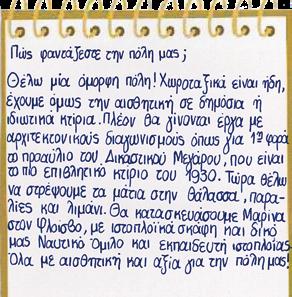 Πώς φαντάζεστε την πόλη μας;
Θέλω μία όμορφη πόλη! Χωροταξικά είναι ήδη,
έχουμε όμως την αισθητική σε δημόσια ή
ιδιωτικα κτίρια. Πλέον θα γίνονται έργα με
αρχιτεκτονικούς διαγωνισμούς όπως για 1η φορά
το προαύλιο του Δικαστικού Μεγάρου, που είναι
το πιο επιβλητικό κτίριο του 1930. Τώρα θέλω
να στρέψουμε τα μάτια στην θάλασσα, παρα-
λίες και λιμάνι. Θα κατασκευάσουμε Μαρίνα
στον Φλοίσβο, με ιστιοπλοϊκά σκάφη και δικό
μας Ναυτικό Όμιλο και εκπαιδευτή ιστιοπλοΐας
Όλα με αισθητική και αξία για την πόλη μας!